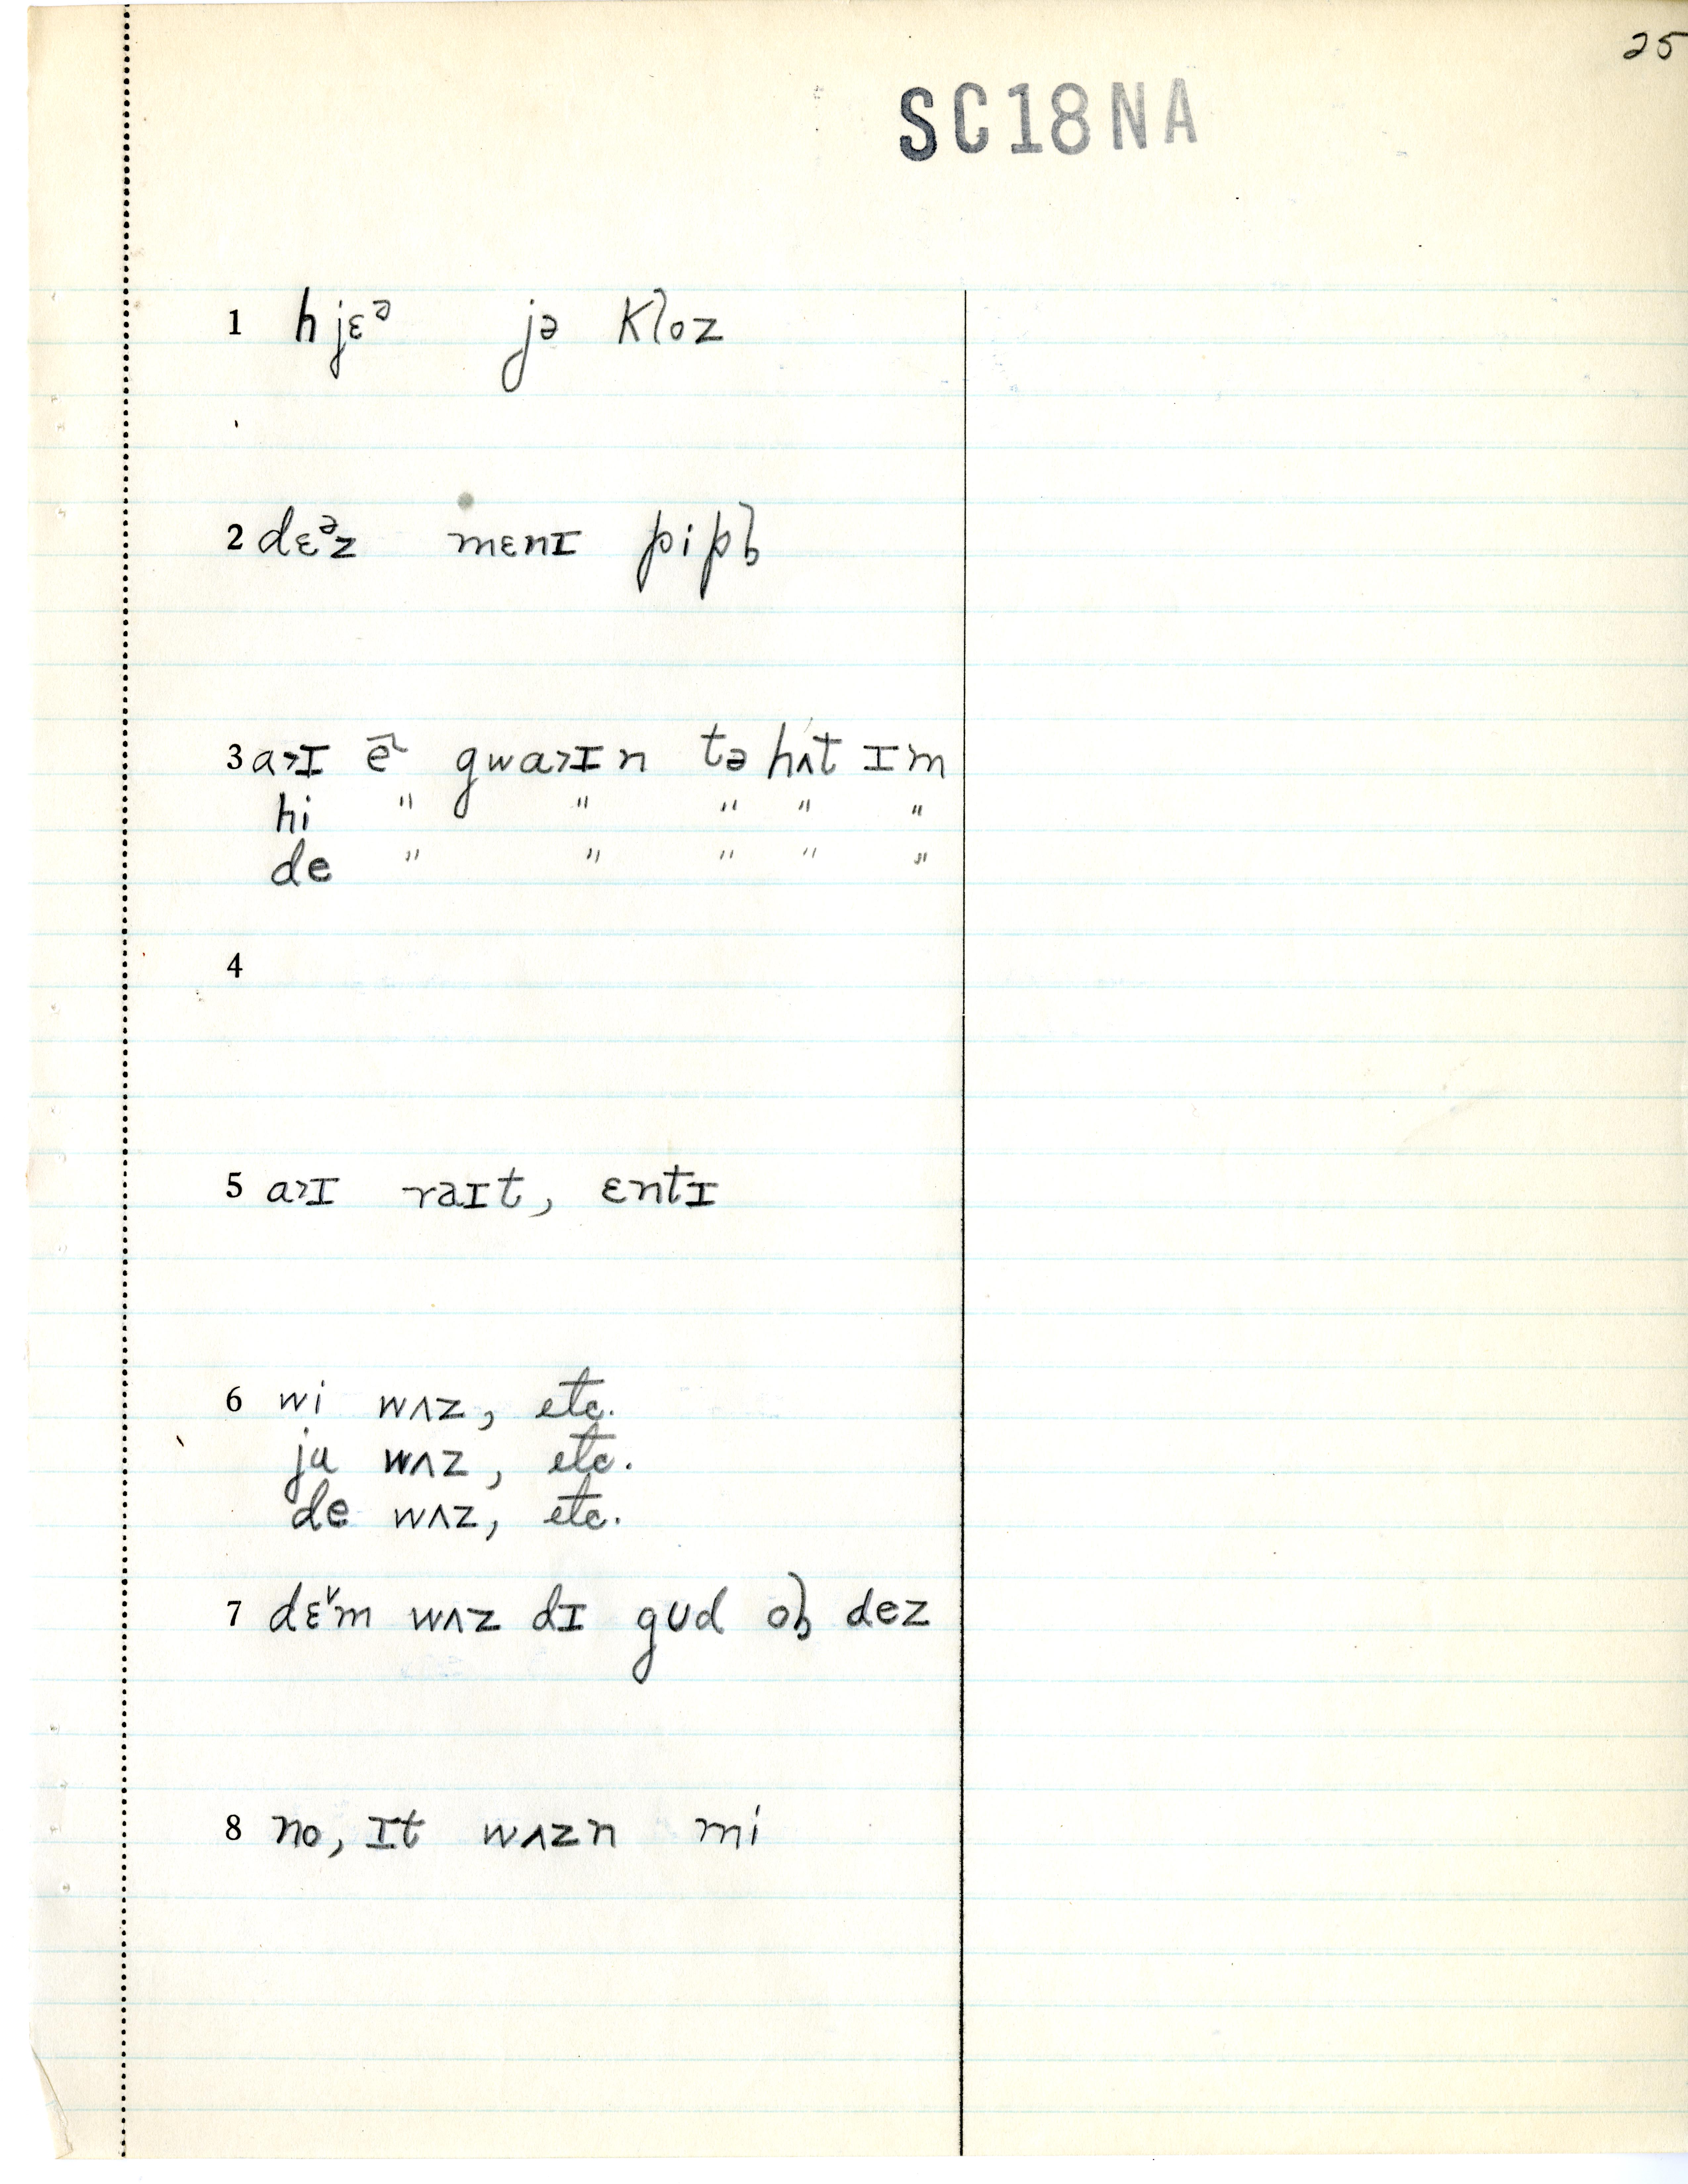 25
SC18NA
1 hjɛᵊ jə kloz
2 dɛᵊz mɛnɪ pipḷ
3 a˃ɪ ẽ˔ gwa˃ɪn tə hʌt ɪm
hi " " " " "
de " " " " "
4
5 a˃ɪ raɪt, ɛntɪ
6 wi wʌz, etc.
ju wʌz, etc.
de wʌz, etc.
7 dɛ˅m wʌz dɪ gud ol̩ dez
8 no, ɪt wʌzn mi